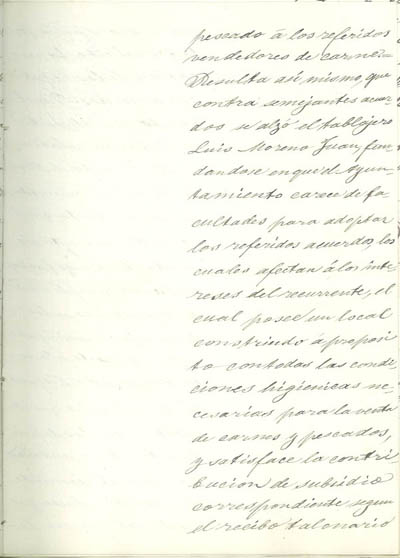 pescado á los referidos
vendedores de carne=
Resulta asi mismo, que
contra semejantes acuer-
dos se alzó el tablajero
Luis Moreno Juan, fun-
dandose en que el Ayun-
tamiento carece de fa-
cultades para adoptar
los referidos acuerdos, los
cuales afectan á los inte-
reses del recurrente, el
cual posee un local
construido á proposi
to con todas las condi-
ciones higienicas ne-
cesarias para la venta
de carnes y pescados,
y satisface la contri
bucion de subsidio
correspondiente segun
el recibo talonario